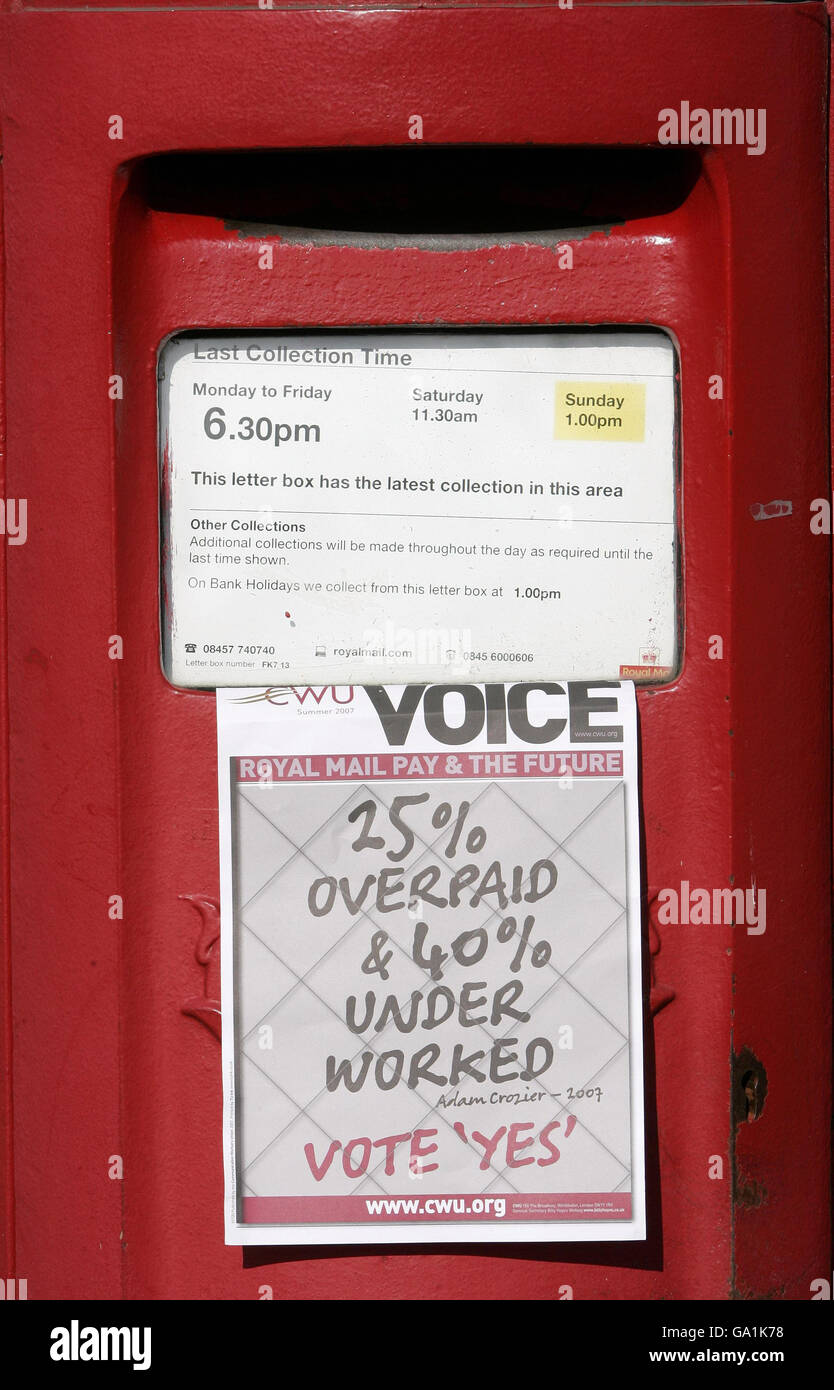 Last Collection Time
Monday to Friday
6.30pm
Saturday
11.30am
Sunday
1.00pm
This letter box has the latest collection in this area
Other Collections
Additional collections will be made throughout the day as required until the
last time shown.
On Bank Holidays we collect from this letter box at 1.00pm
08457 740740
royalmail.com
0845 6000606
Letter box number FK7 13
Royal Ma
CWU
Summer 2007
VOICE
www.cwu.org
ROYAL MAIL PAY & THE FUTURE
25%
OVERPAID
& 40%
UNDER
WORKED
Adam Crozier – 2007
VOTE 'YES'
www.cwu.org
CWU 150 The Broadway, Wimbledon, London SW19 1RX
General Secretary Billy Hayes
alamy
a
alamy
Image ID: GA1K78
www.alamy.com